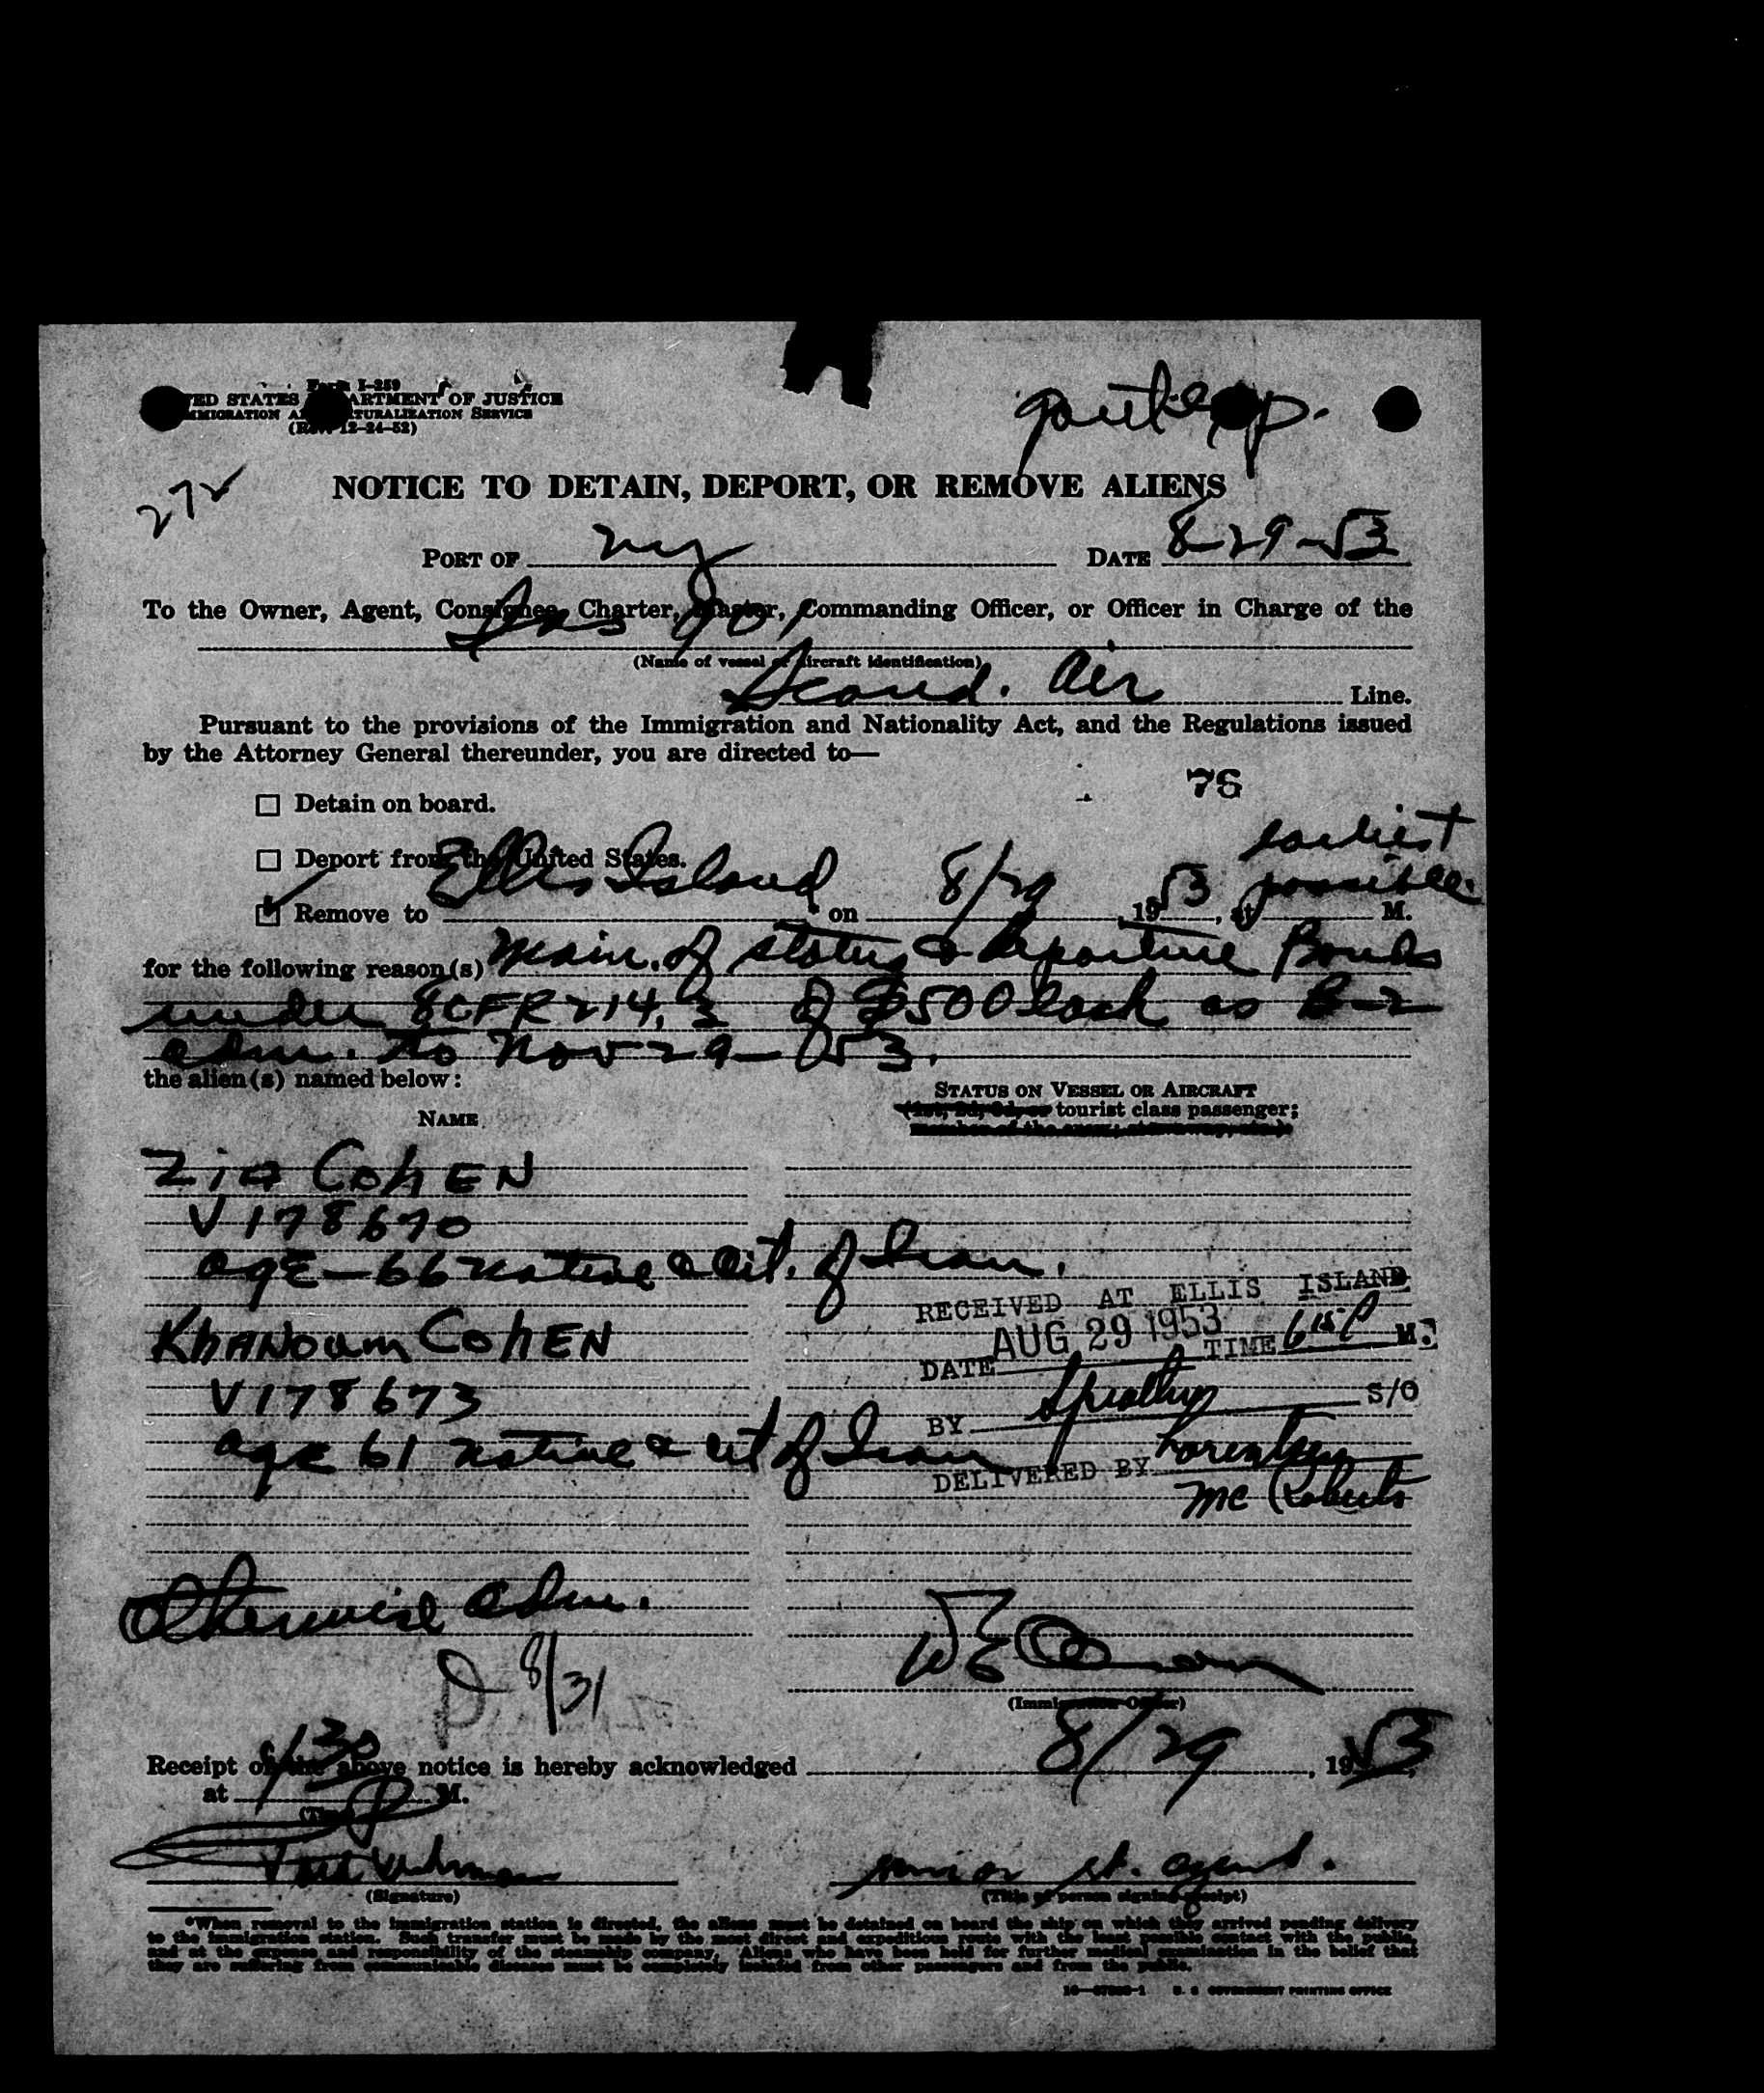 Form I-259
UNITED STATES DEPARTMENT OF JUSTICE
IMMIGRATION AND NATURALIZATION SERVICE
(Rev. 12-24-52)
272
NOTICE TO DETAIN, DEPORT, OR REMOVE ALIENS
PORT OF ny DATE 8-29-53
To the Owner, Agent, Consignee, Charter, Master, Commanding Officer, or Officer in Charge of the
(Name of vessel or aircraft identification)
Scand. Air Line.
Pursuant to the provisions of the Immigration and Nationality Act, and the Regulations issued
by the Attorney General thereunder, you are directed to—
Detain on board.
Deport from the United States.
earliest
Remove to Ellis Island * on 8/29, 1953, at possible M.
for the following reason(s) Main. of status & departure Bonds
under 8CFR 214.3 of $500 cash as B-2
adm. to Nov 29-53.
the alien(s) named below:
NAME
STATUS ON VESSEL OR AIRCRAFT
(1st, 2d, 3d, or tourist class passenger;
Zia COHEN
V178670
age-66 native & cit. of Iran.
KHANOUM COHEN
V178673
age 61 native & cit of Iran
RECEIVED AT ELLIS ISLAND
DATE AUG 29 1953 TIME 6 15 P M.
BY S/O
DELIVERED BY
Mc Roberts
Otherwise adm.
D 8/31
(Immigration Officer)
Receipt of the above notice is hereby acknowledged 8/29, 1953,
at 130 P M.
(Time)
senior st. agent.
(Signature)
(Title of person signing receipt)
*When removal to the immigration station is directed, the aliens must be detained on board the ship on which they arrived pending delivery
to the immigration station. Such transfer must be made by the most direct and expeditious route with the least possible contact with the public,
and at the expense and responsibility of the steamship company. Aliens who have been held for further medical examination in the belief that
they are suffering from communicable diseases must be completely isolated from other passengers and from the public.
U. S. GOVERNMENT PRINTING OFFICE